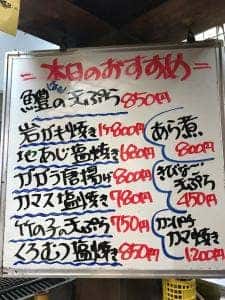 本日のおすすめ
鱧の天ぷら 850円
岩ガキ焼き 1ケ800円
地あじ塩焼き 680円
ガガラ唐揚げ 800円
カマス塩焼き 780円
竹の子の天ぷら 750円
くろむつ塩焼き 850円
あら煮
800円
きびなご
天ぷら
450円
カマ焼き
1200円